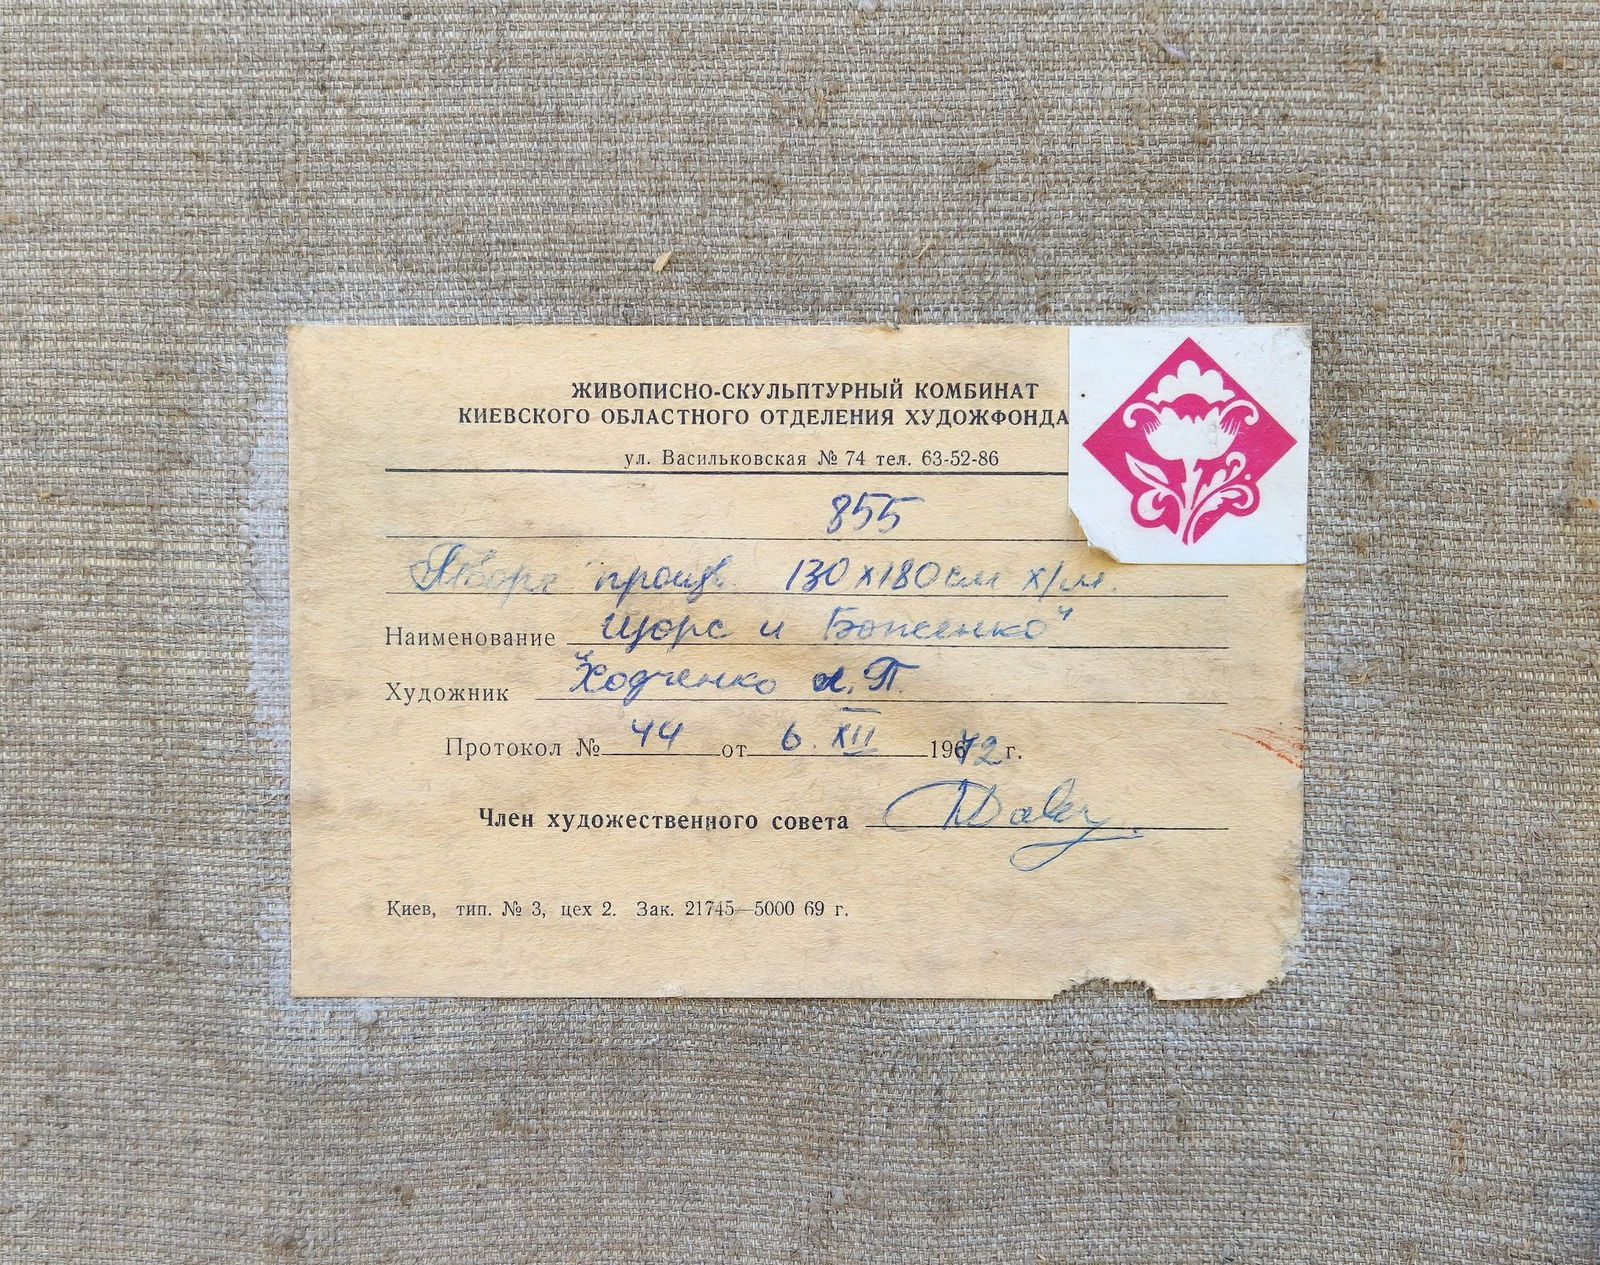 ЖИВОПИСНО-СКУЛЬПТУРНЫЙ КОМБИНАТ
КИЕВСКОГО ОБЛАСТНОГО ОТДЕЛЕНИЯ ХУДОЖФОНДА
ул. Васильковская № 74 тел. 63-52-86
855
произв. 130х180см х/м.
Наименование Щорс и Боженко"
Художник "Ходченко Л.П.
Протокол № 44 от 6. XII 1972 г.
Член художественного совета
Киев, тип. № 3, цех 2. Зак. 21745—5000 69 г.